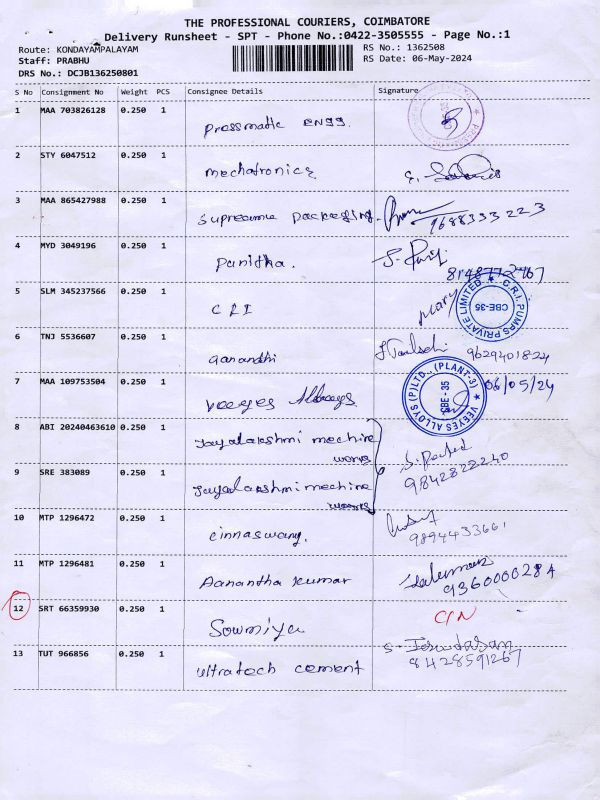 THE PROFESSIONAL COURIERS, COIMBATORE
Delivery Runsheet - SPT - Phone No.:0422-3505555 - Page No.:1
Route: KONDAYAMPALAYAM
Staff: PRABHU
DRS No.: DCJB136250801
RS No.: 1362508
RS Date: 06-May-2024
S No Consignment No Weight PCS Consignee Details Signature
1 MAA 703826128 0.250 1
pressmatic engg
2 STY 6047512 0.250 1
mechatronics
3 MAA 865427988 0.250 1
supreme packaging
9688333223
4 MYD 3049196 0.250 1
Punitha.
8148772967
5 SLM 345237566 0.250 1
CRI
C.R.I. PUMPS PRIVATE LIMITED
CBE-35
6 TNJ 5536607 0.250 1
9629401824
7 MAA 109753504 0.250 1
veeyes Alloys
VEEYES ALLOYS (P) LTD., (PLANT-3)
CBE - 35
06/05/24
8 ABI 20240463610 0.250 1
Jayalakshmi mechine
works
9842822240
9 SRE 383089 0.250 1
Jayalakshmi mechine
works
10 MTP 1296472 0.250 1
cinnaswamy.
9894433661
11 MTP 1296481 0.250 1
Aanantha kumar
9360000284
12 SRT 66359930 0.250 1
Sowmiya
C/N
13 TUT 966856 0.250 1
ultratech cement
S. Jesudasan
8428591267